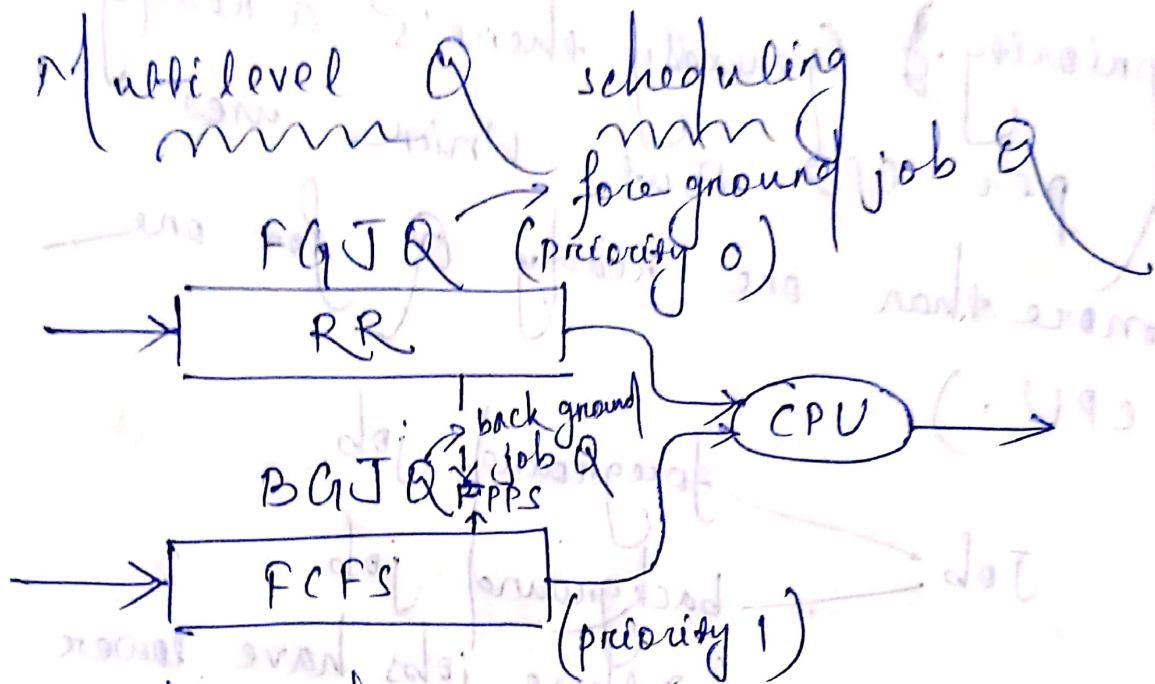 Multilevel Q scheduling
foreground job Q
FGJQ (priority 0)
RR
CPU
back ground
job Q
BGJQ
PPS
FCFS
(priority 1)